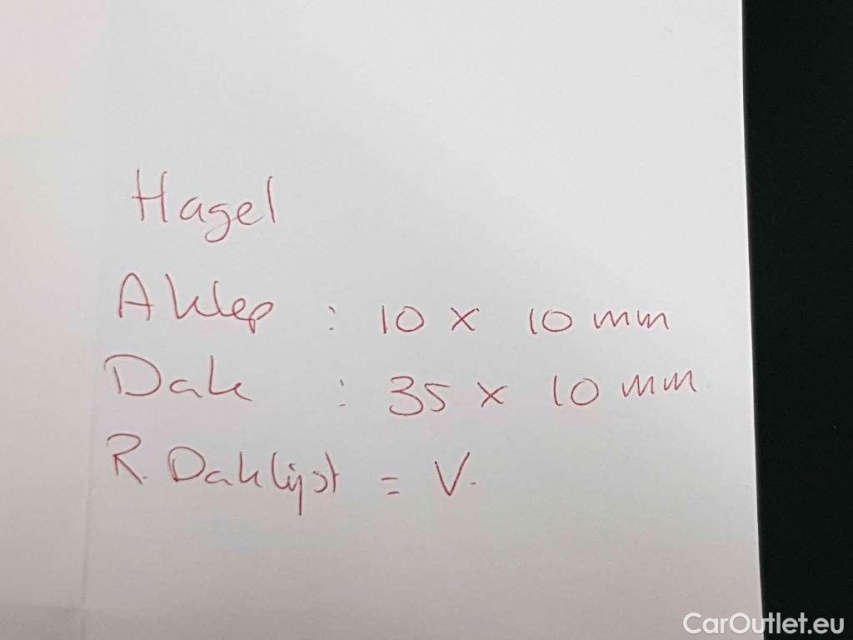 Hagel
A klep : 10 x 10 mm
Dak : 35 x 10 mm
R. Daklijst = V.
CarOutlet.eu